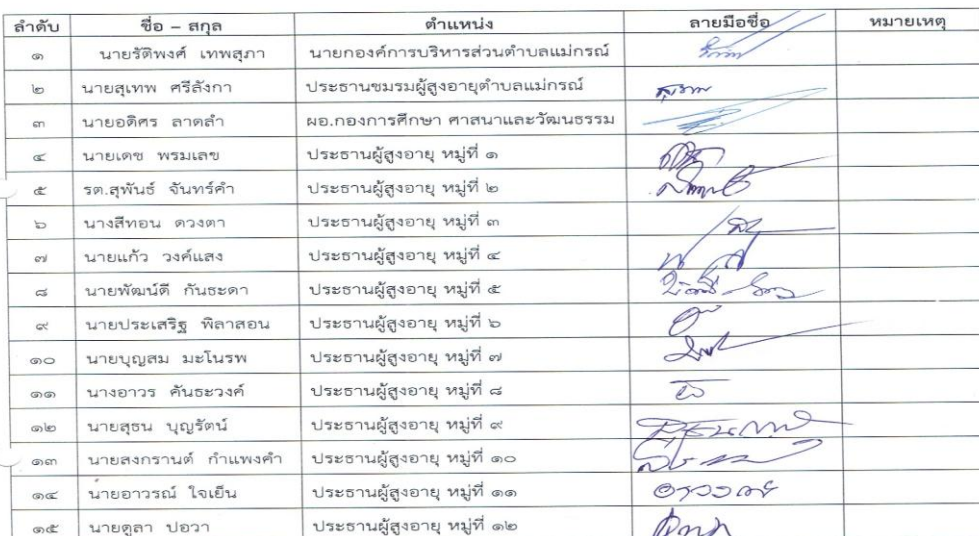 ลำดับ ชื่อ – สกุล ตำแหน่ง ลายมือชื่อ หมายเหตุ
๑ นายรัติพงศ์ เทพสุภา นายกองค์การบริหารส่วนตำบลแม่กรณ์
๒ นายสุเทพ ศรีลังกา ประธานชมรมผู้สูงอายุตำบลแม่กรณ์
๓ นายอดิศร ลาดลำ ผอ.กองการศึกษา ศาสนาและวัฒนธรรม
๔ นายเดช พรมเลข ประธานผู้สูงอายุ หมู่ที่ ๑
๕ รต.สุพันธ์ จันทร์คำ ประธานผู้สูงอายุ หมู่ที่ ๒
๖ นางสีทอน ดวงตา ประธานผู้สูงอายุ หมู่ที่ ๓
๗ นายแก้ว วงค์แสง ประธานผู้สูงอายุ หมู่ที่ ๔
๘ นายพัฒน์ดี กันธะดา ประธานผู้สูงอายุ หมู่ที่ ๕
๙ นายประเสริฐ พิลาสอน ประธานผู้สูงอายุ หมู่ที่ ๖
๑๐ นายบุญสม มะโนรพ ประธานผู้สูงอายุ หมู่ที่ ๗
๑๑ นางอาวร คันธะวงค์ ประธานผู้สูงอายุ หมู่ที่ ๘
๑๒ นายสุธน บุญรัตน์ ประธานผู้สูงอายุ หมู่ที่ ๙
๑๓ นายสงกรานต์ กำแพงคำ ประธานผู้สูงอายุ หมู่ที่ ๑๐
๑๔ นายอาวรณ์ ใจเย็น ประธานผู้สูงอายุ หมู่ที่ ๑๑
๑๕ นายตุลา ปอวา ประธานผู้สูงอายุ หมู่ที่ ๑๒